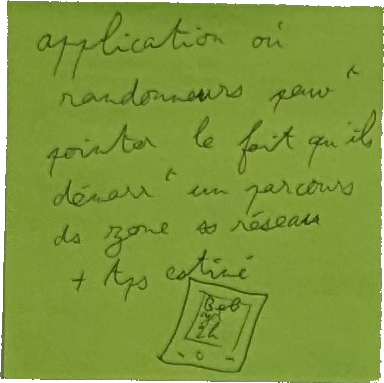 application où
randonneurs peuv^t
pointer le fait qu'ils
démarr^t un parcours
ds zone ss réseau
+ tps estimé
Bob
2h